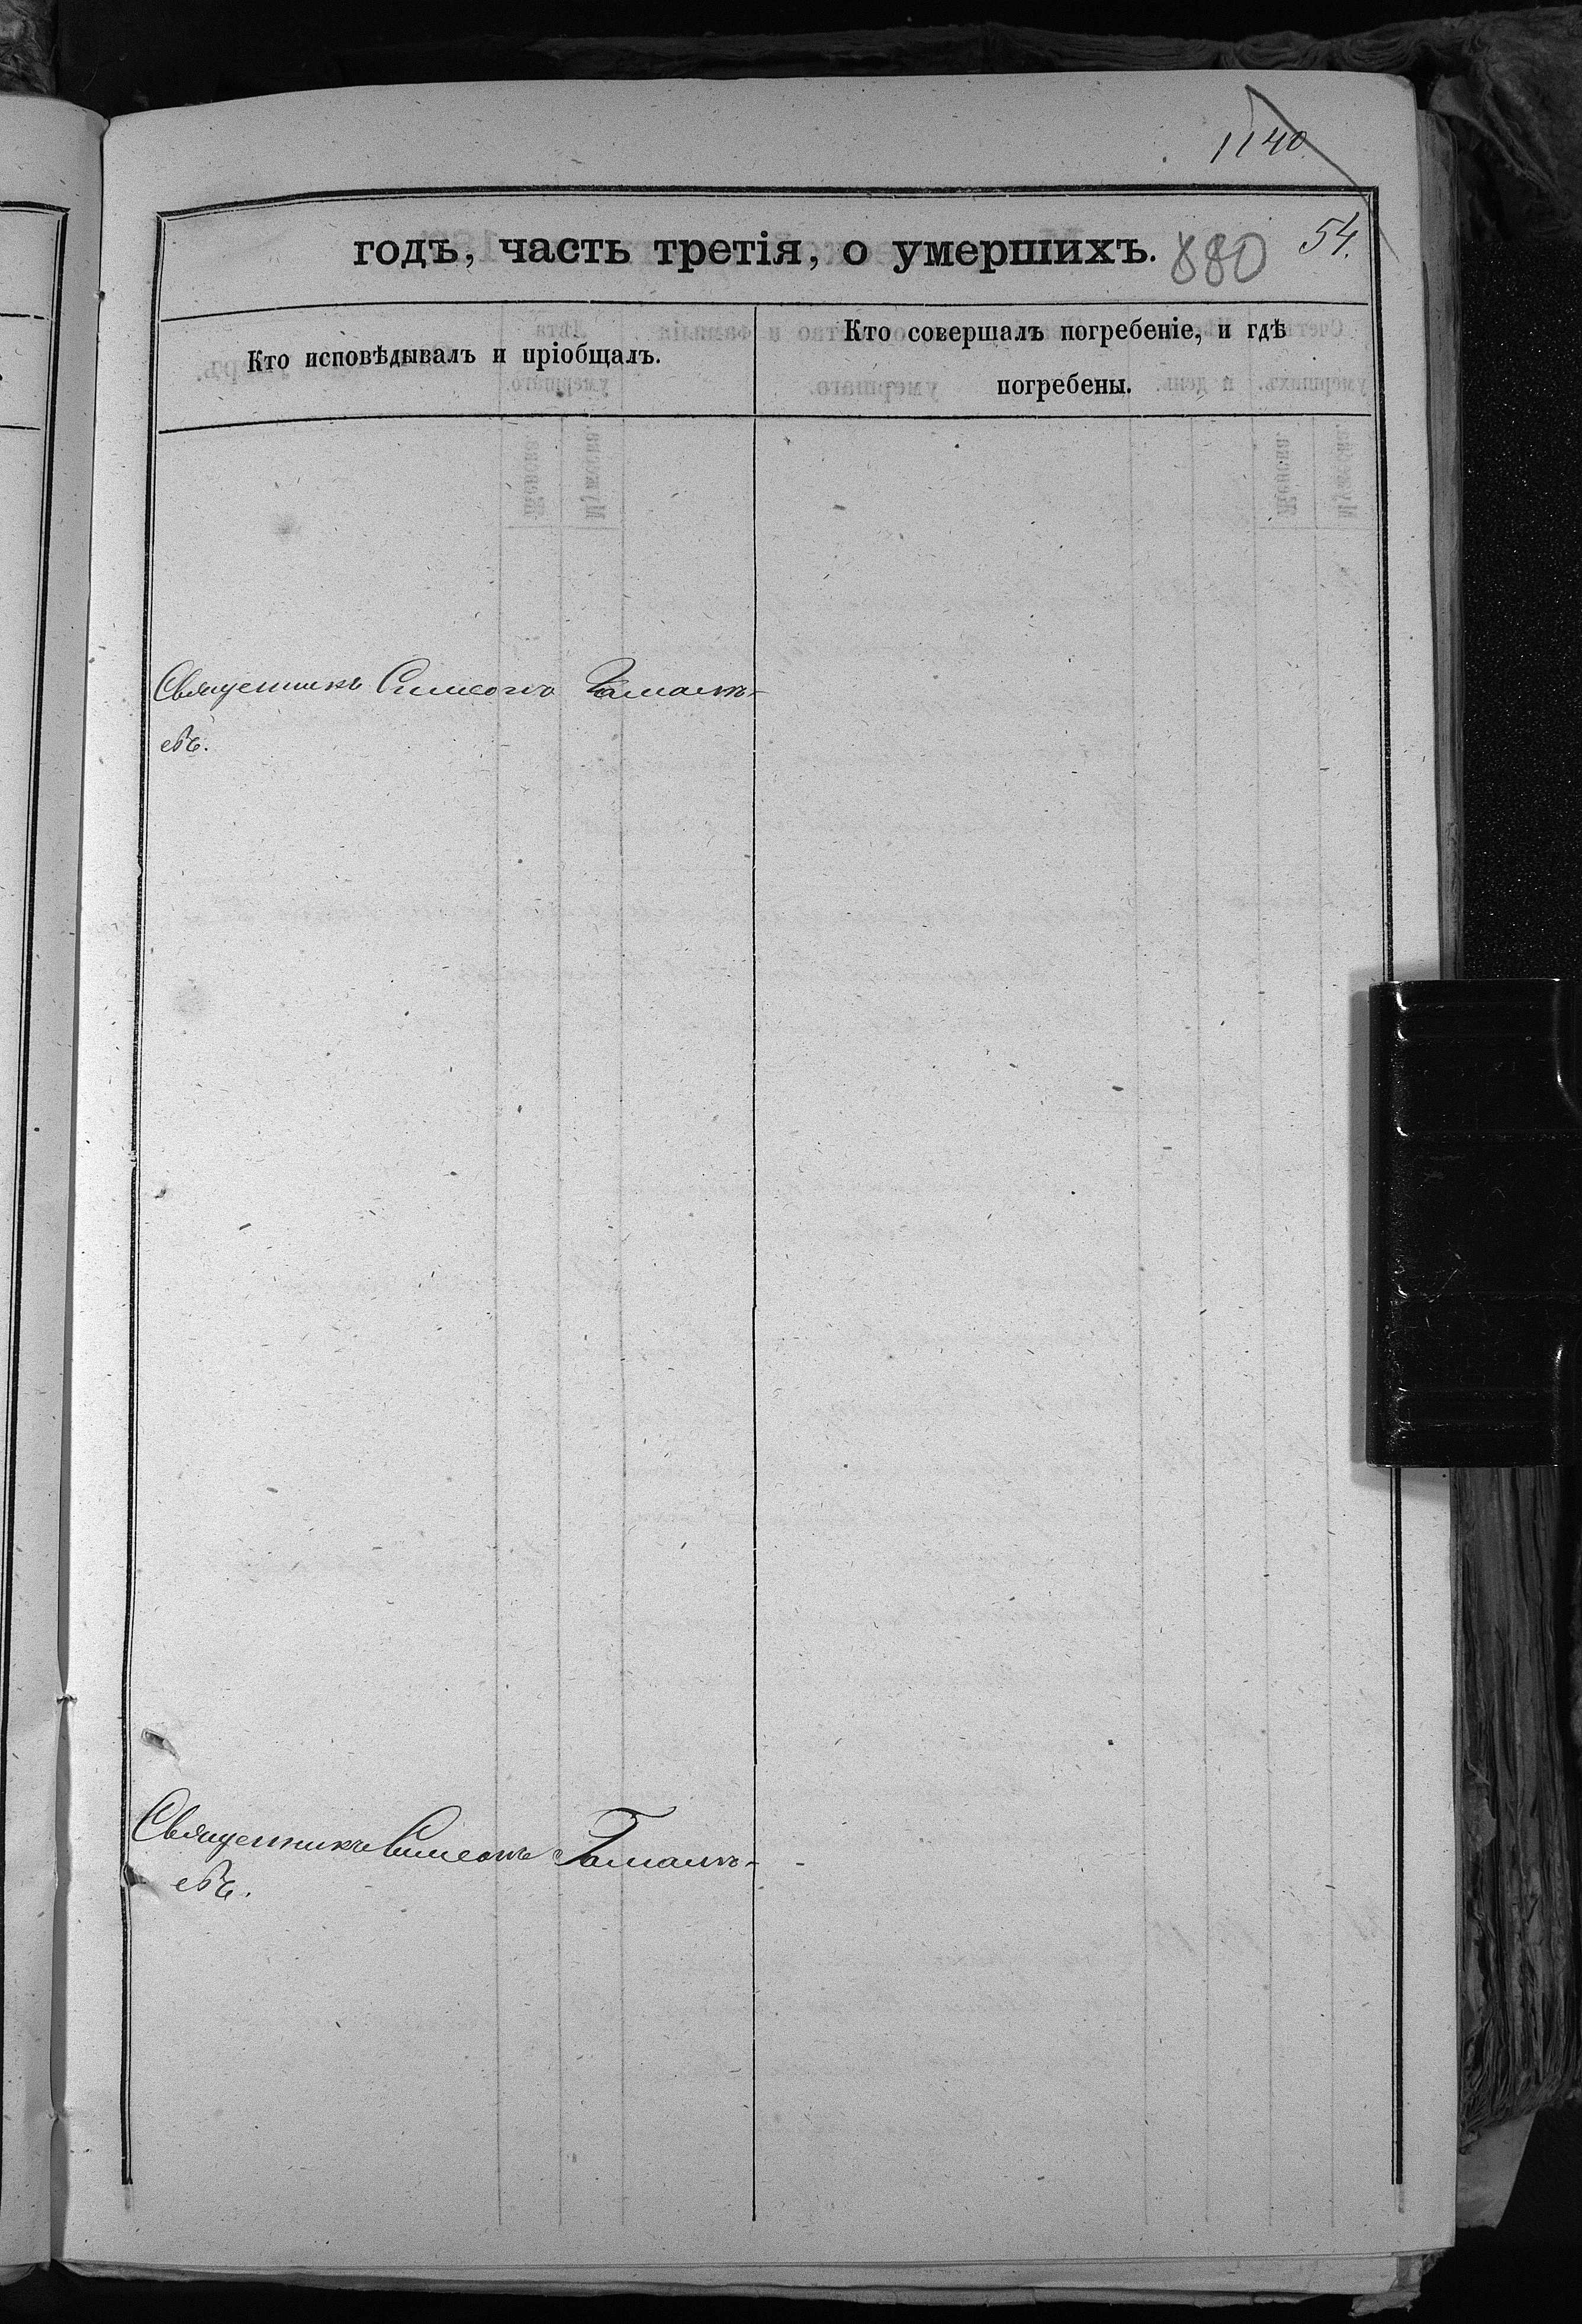 1140
54.
годъ, часть третія, о умершихъ. 880
Кто исповѣдывалъ и пріобщалъ.
Кто совершалъ погребеніе, и гдѣ
погребены.
Священникъ Симеонъ
евъ.
Священникъ Симеонъ
евъ.